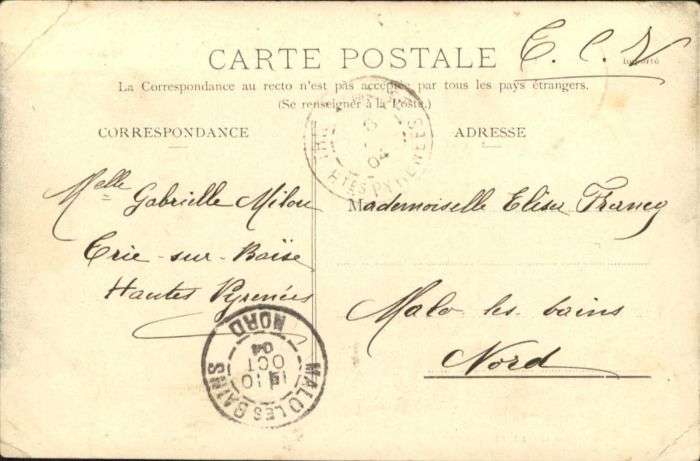 CARTE POSTALE
T. C. V
La Correspondance au recto n'est pas acceptée par tous les pays étrangers.
(Se renseigner à la Poste.)
CORRESPONDANCE
ADRESSE
Melle Gabrielle Milou
Trie-sur-Baïse
Hautes Pyrenées
Mademoiselle Elise Francq
Malo les bains
Nord
Htes PYRENEES
04
MALO LES BAINS
NORD
10
OCT
04